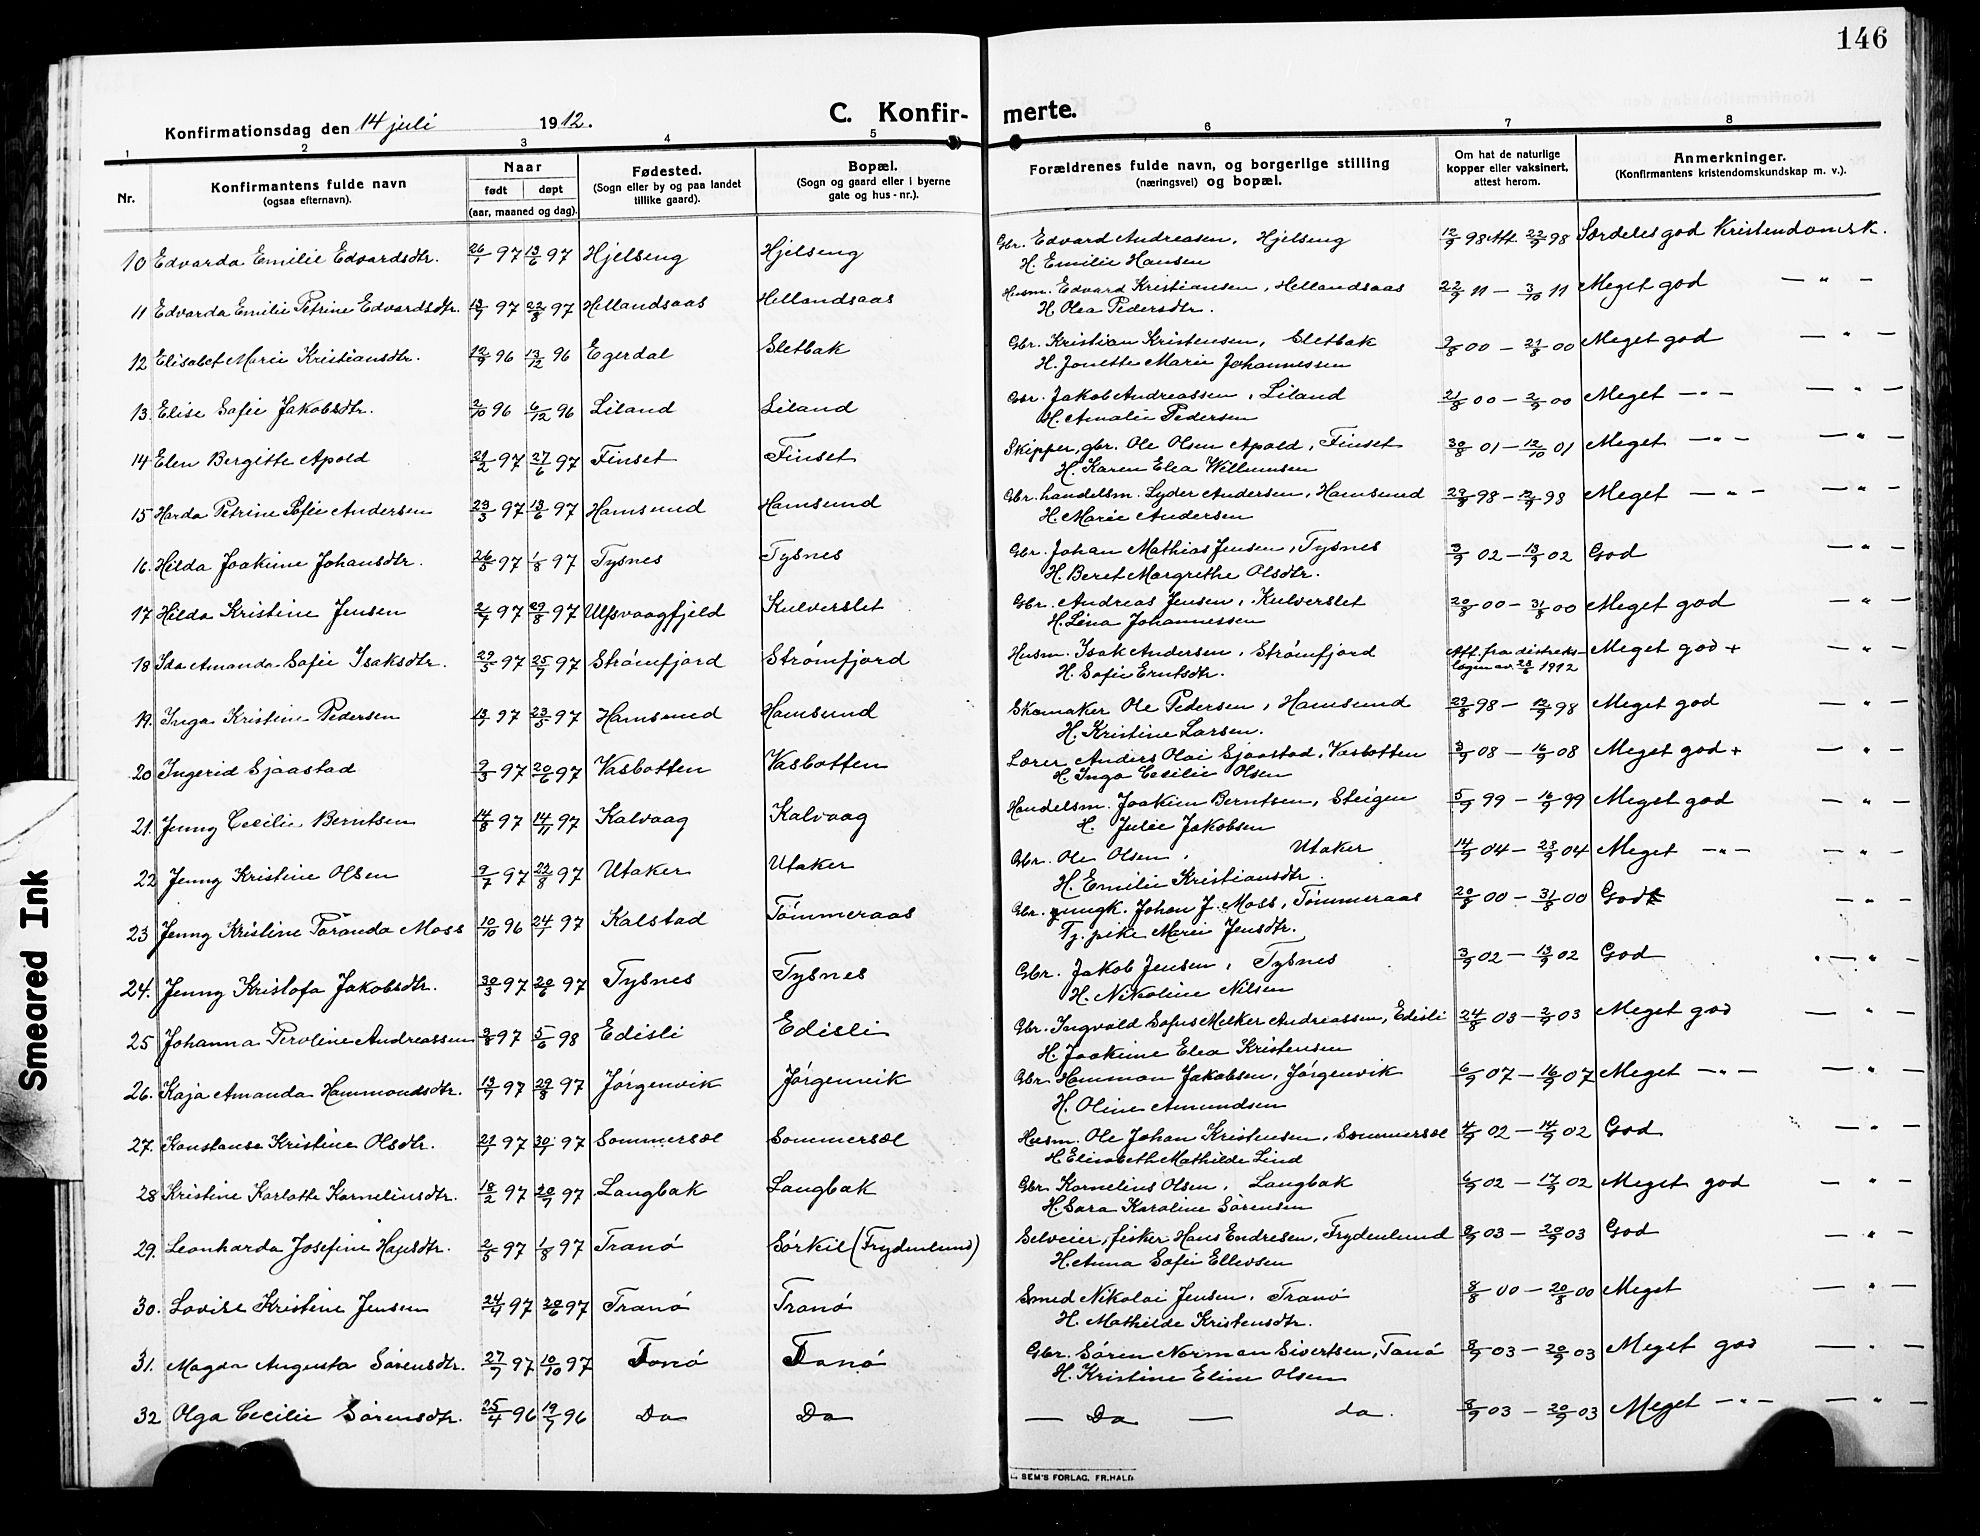 146
Konfirmationsdag den 14 juli 1912.
C. Konfirmerte.
1 2 3 4 5 6 7 8
Nr.
Konfirmantens fulde navn
(ogsaa efternavn).
Naar
født døpt
(aar, maaned og dag).
Fødested.
(Sogn eller by og paa landet
tillike gaard).
Bopæl.
(Sogn og gaard eller i byerne
gate og hus-nr.).
Forældrenes fulde navn, og borgerlige stilling
(næringsvei) og bopæl.
Om hat de naturlige
kopper eller vaksinert,
attest herom.
Anmerkninger.
(Konfirmantens kristendomskundskap m. v.).
10 Edvarda Emilie Edvardsdtr. 26/1 97 13/6 97 Hjelseng Hjelseng Gbr. Edvard Andreasen, Hjelseng 12/9 98 Att. 22/9 98 Særdeles god Kristendomsk.
H. Emilie Hansen
11 Edvarda Emilie Petrine Edvardsdtr. 97 22/8 97 Hellandsaas Hellandsaas Husm. Edvard Kristiansen, Hellandsaas 22/9 11 — 3/10 11 Meget god — " —
H. Olea Pedersdtr.
12 Elisabet Marie Kristiansdtr. 12/9 96 13/12 96 Egerdal Sletbak Gbr. Kristian Kristensen, Sletbak 00 — 21/8 00 Meget god — " —
H. Jonette Marie Johannessen
13. Elise Sofie Jakobsdtr. 2/10 96 6/12 96 Liland Liland Gbr. Jakob Andreassen, Liland 21/8 00 — 2/9 00 Meget — " — — " —
H. Amalie Pedersen
14 Elen Bergitte Apold 97 27/6 97 Finset Finset Skipper, gbr. Ole Olsen Apold, Finset 30/8 01 — 12/10 01 Meget — " — — " —
H. Karen Elea Willumsen
15 Harda Petrine Sofie Andersen 23/3 97 13/6 97 Hamsund Hamsund Gbr. handelsm. Lyder Andersen, Hamsund 29/8 98 — 12/9 98 Meget — " — — " —
H. Marie Andersen
16. Hilda Joakime Johansdtr. 26/5 97 1/8 97 Tysnes Tysnes Gbr. Johan Mathias Jensen, Tysnes 3/9 02 — 13/9 02 God — " —
H. Beret Margrethe Olsdtr.
17 Hilda Kristine Jensen 97 29/8 97 Ulfsvaagfjeld Kulverslet Gbr. Andreas Jensen, Kulverslet 20/8 00 — 31/8 00 Meget god — " —
H. Lina Johannessen
18 Ida Amanda Sofie Isaksdtr. 97 97 Strømfjord Strømfjord Husm. Isak Andersen, Strømfjord Att. fra distrikts- Meget god + — " —
H. Sofie Erntsdtr. lægen av 1912
19. Inga Kristine Pedersen 97 23/5 97 Hamsund Hamsund Skomaker Ole Pedersen, Hamsund 29/8 98 — 12/9 98 Meget god — " —
H. Kristine Larsen.
20 Ingerid Sjaastad 97 20/6 97 Vasbotten Vasbotten Lærer Anders Olai Sjaastad, Vasbotten 08 — 16/9 08 Meget god + — " —
H. Inga Cecilie Olsen
21. Jenny Cecilie Berntsen 14/8 97 14/11 97 Kalvaag Kalvaag Handelsm. Joakim Berntsen, Steigen 5/9 99 — 16/9 99 Meget god — " —
H. Julie Jakobsen
22 Jenny Kristine Olsen 9/7 97 22/8 97 Utaker Utaker Gbr. Ole Olsen, Utaker 14/9 04 — 23/9 04 Meget — " — — " —
H. Emilie Kristiansdtr.
23 Jenny Kristine Paranda Moss 10/10 96 24/1 97 Kalstad Tømmeraas Gbr. yungk. Johan J. Moss, Tømmeraas 20/8 00 — 31/8 00 God — " —
Tj. pike Marie Jensdtr.
24. Jenny Kristofa Jakobsdtr. 30/3 97 20/6 97 Tysnes Tysnes Gbr. Jakob Jensen, Tysnes 3/9 02 — 13/9 02 God — " —
H. Nikoline Nilsen
25 Johanna Peroline Andreassen 97 5/6 98 Edisli Edisli Gbr. Ingvald Sofus Melker Andreassen, Edisli 24/8 03 — 2/9 03 Meget god — " —
H. Joakime Elea Kristensen
26. Kaja Amanda Hammondsdtr. 97 29/8 97 Jørgenvik Jørgenvik Gbr. Hammon Jakobsen, Jørgenvik 6/9 07 — 16/9 07 Meget — " — — " —
H. Oline Amundsen
27. Konstanse Kristine Olsdtr. 97 97 Sommersæl Sommersæl Husm. Ole Johan Kristensen, Sommersæl 4/9 02 — 14/9 02 God — " —
H. Elisabeth Mathilde Lind
28 Kristine Karlotte Kornelinsdtr. 18/2 97 97 Langbak Langbak Gbr. Kornelius Olsen, Langbak 6/9 02 — 17/9 02 Meget god — " —
H. Sara Karoline Sørensen
29. Leonharda Josefine Hansdtr. 97 1/8 97 Tranø Sørkil (Frydenlund) Selveier, fisker Hans Endresen, Frydenlund 8/9 03 — 20/9 03 God — " —
H. Anna Sofie Ellevsen
30. Lovise Kristine Jensen 24/4 97 20/6 97 Tranø Tranø Smed Nikolai Jensen, Tranø 8/8 00 — 20/8 00 Meget — " —
H. Mathilde Kristensdtr.
31. Magda Augusta Sørensdtr. 27/7 97 10/10 97 Tanø Tanø Gbr. Søren Norman Sivertsen, Tanø 8/9 03 — 20/9 03 Meget god — " —
H. Kristine Eline Olsen
32 Olga Cecilie Sørensdtr. 25/4 96 19/7 96 Do Do — Do — do. 8/9 03 — 20/9 03 Meget — " — — " —
SEM'S FORLAG, FR.HALD
Smeared Ink